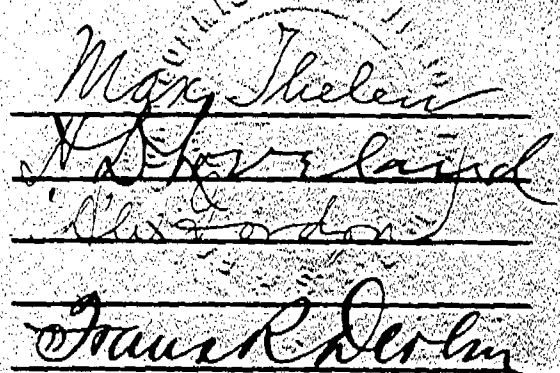 Max Thelen
H D Loveland
Alex Gordon
Frank R Devlin